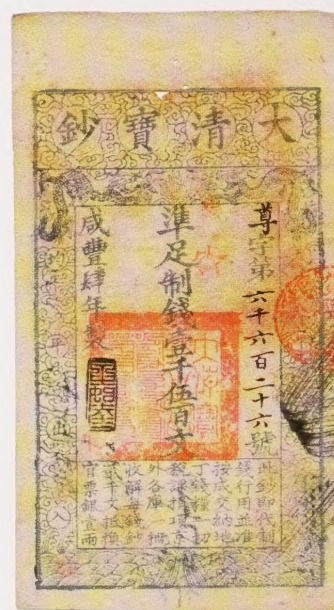 大清寶鈔
尊字第六千六百二十六號
準足制錢壹千伍百文
咸豐肆年製
此鈔即代制
錢行用並准
按成交納地
丁錢糧一切
稅課捐項京
外各庫一概
收解每錢鈔
貳千文抵換
官票銀壹兩